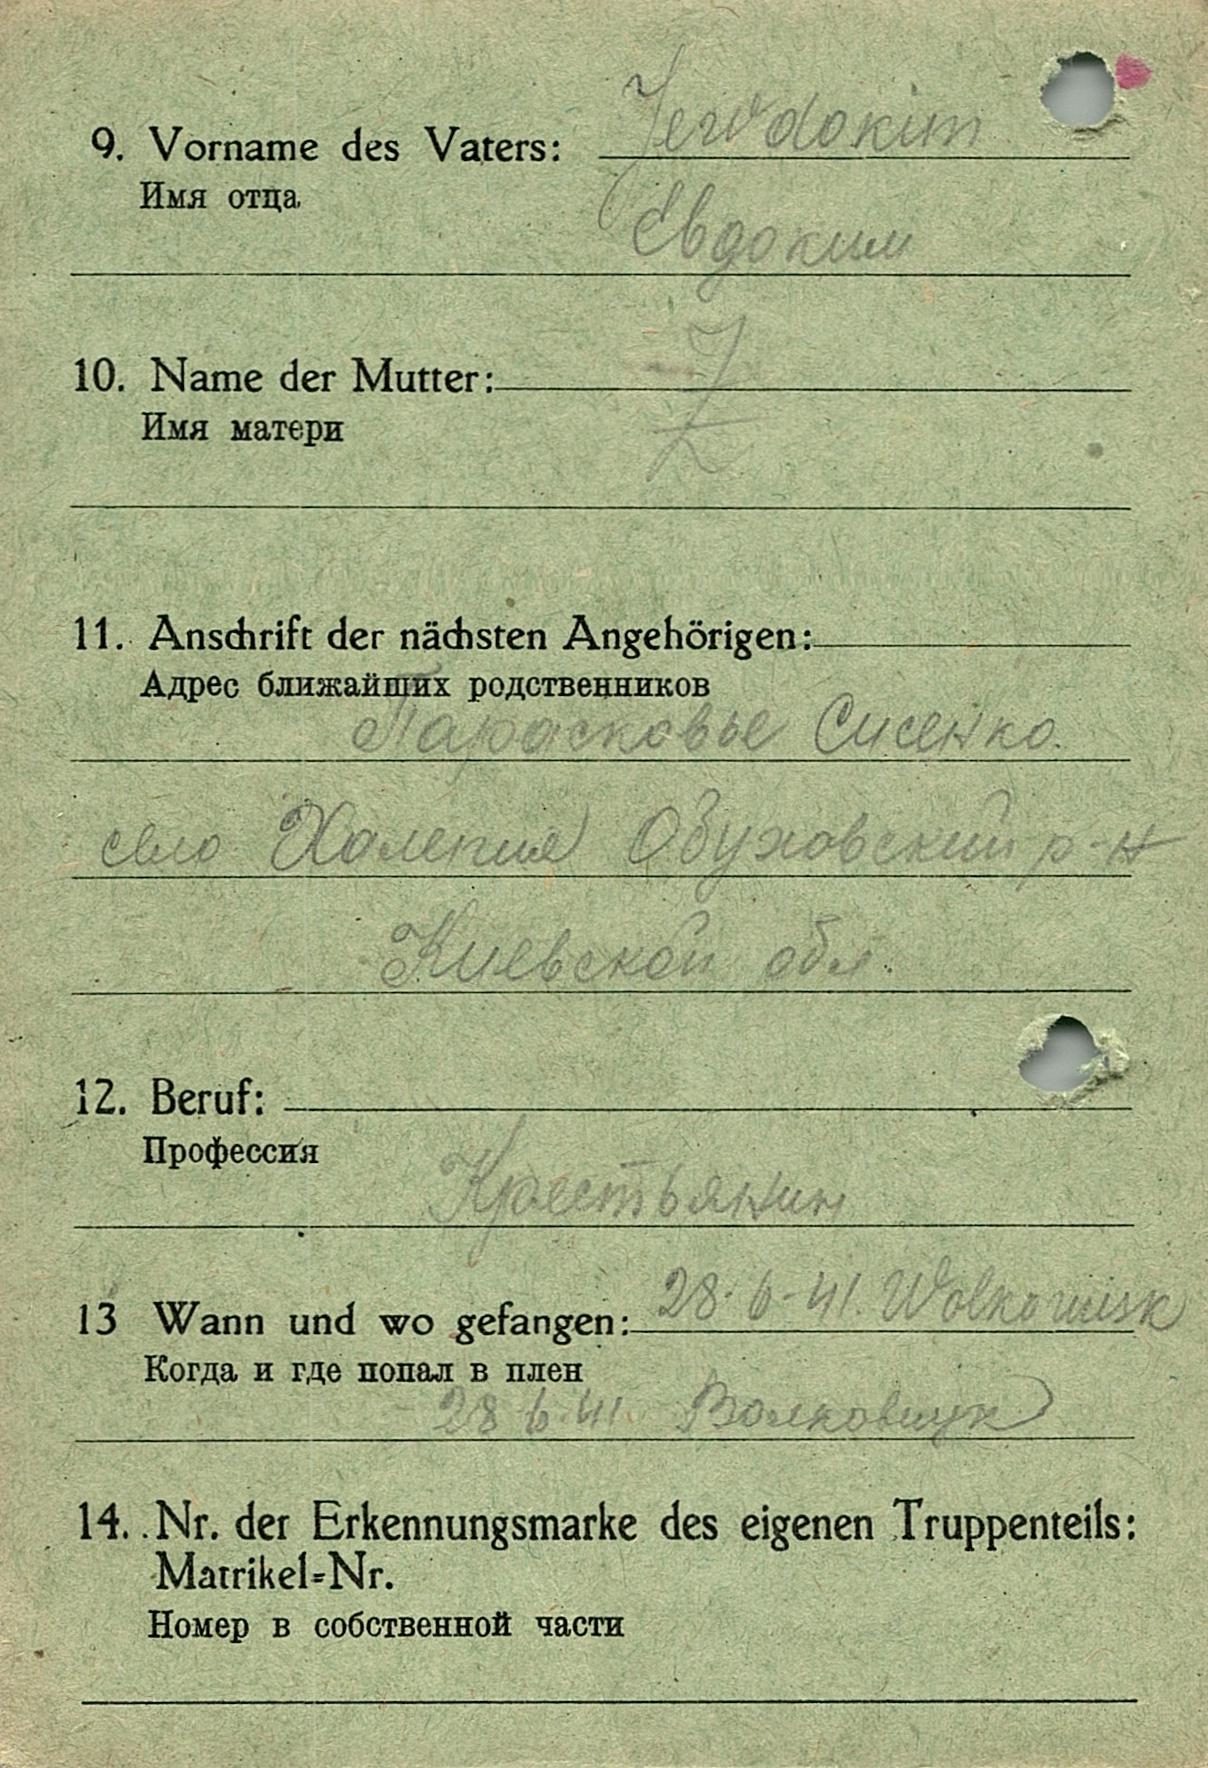 9. Vorname des Vaters: Jewdokim
Имя отца
Евдоким
10. Name der Mutter:
Имя матери
11. Anschrift der nächsten Angehörigen:
Адрес ближайших родственников
Парасковье Сисенко.
село Халепия Обуховский р-н
Киевской обл.
12. Beruf:
Профессия
Крестьянин
13 Wann und wo gefangen: 28.6-41. Wolkowisk
Когда и где попал в плен
28 6.41.
14. Nr. der Erkennungsmarke des eigenen Truppenteils:
Matrikel=Nr.
Номер в собственной части